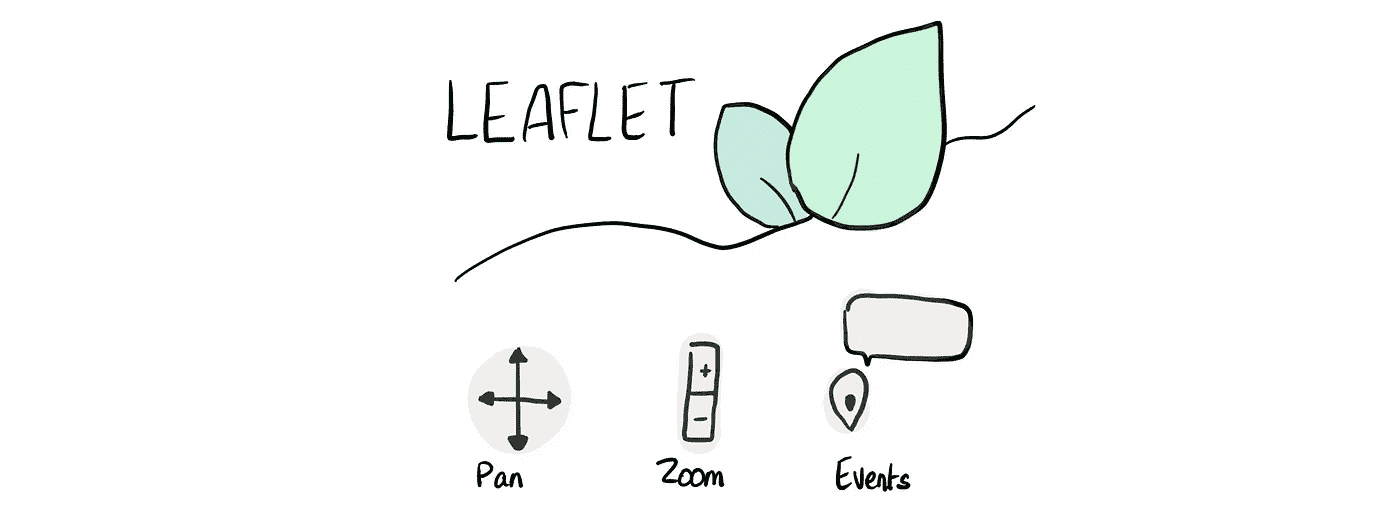 LEAFLET
+
-
Pan Zoom Events